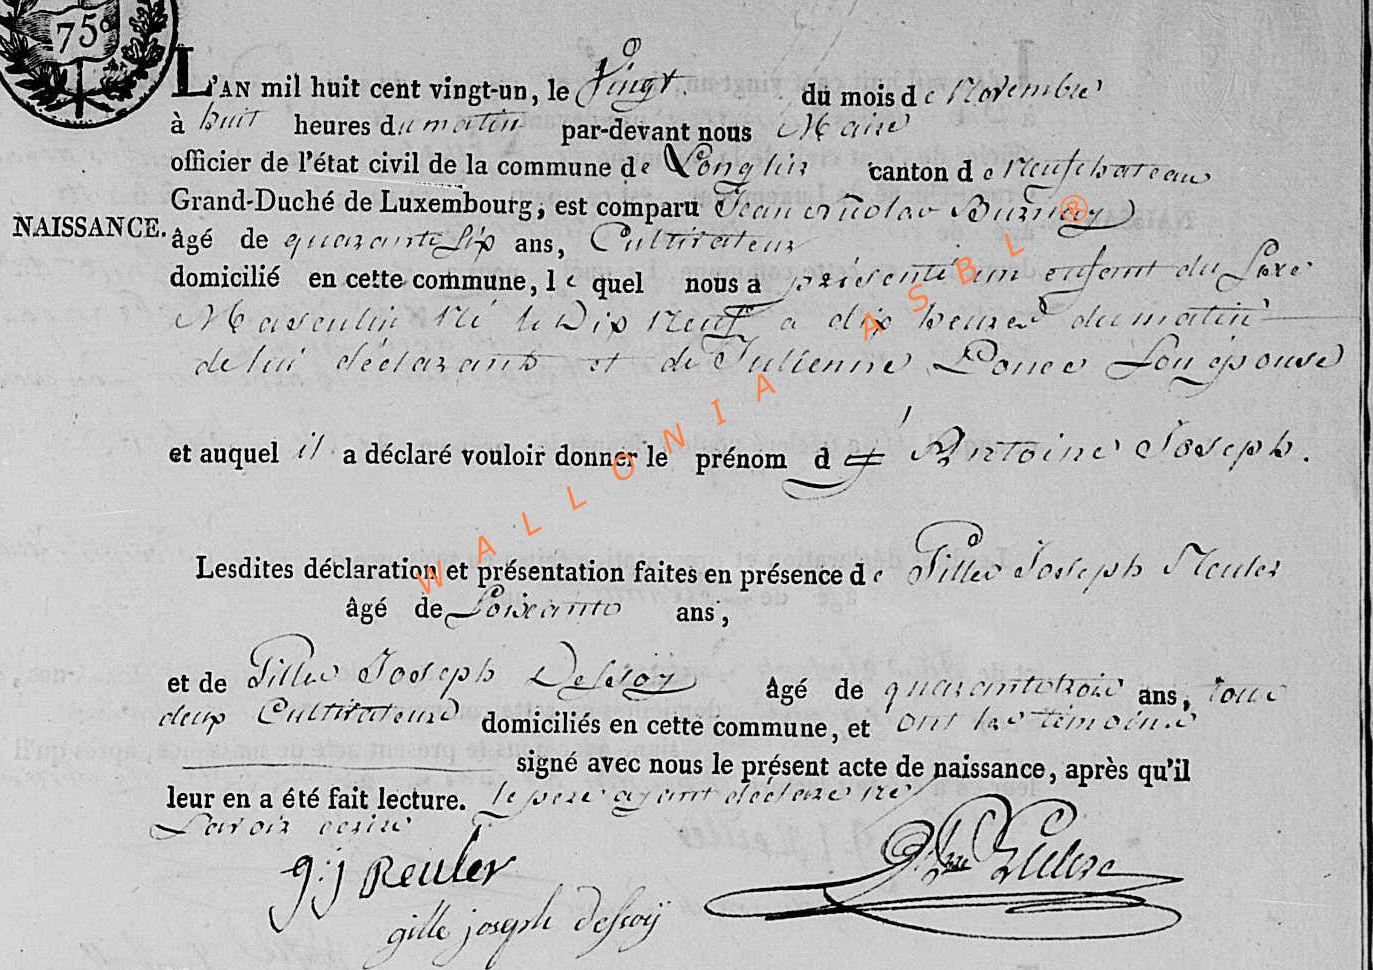 75c
L'AN mil huit cent vingt-un, le Vingt du mois de Novembre
à huit heures du matin par-devant nous Maire
officier de l'état civil de la commune de Longlier canton de neufchateau
Grand-Duché de Luxembourg, est comparu Jean nicolas Burnay
NAISSANCE.
âgé de quarante six ans, Cultivateur
domicilié en cette commune, le quel nous a présenté un enfant du Sexe
Masculin Né le Dix Neuf a dix heures du matin
de lui déclarant et de Julienne Ponce Son épouse
et auquel il a déclaré vouloir donner le prénom d Antoine Joseph.
Lesdites déclaration et présentation faites en présence de Gilles Joseph Reuler
âgé de Soixante ans,
et de Gilles Joseph Dessoÿ âgé de quarante trois ans, tous
deux Cultivateurs domiciliés en cette commune, et ont les témoins
signé avec nous le présent acte de naissance, après qu'il
leur en a été fait lecture. le pere ayant déclaré ne
Savoir ecrire
g:j Reuler
gille joseph dessoÿ
WALLONIA ASBL ®